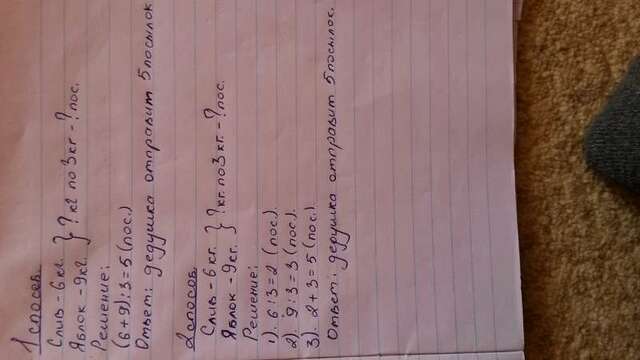 1 способ.
Слив - 6 кг.
Яблок - 9 кг. } ? кг по 3 кг - ? пос.
Решение:
(6+9):3=5 (пос.)
Ответ: дедушка отправит 5 посылок
2 способ.
Слив - 6 кг.
Яблок - 9 кг. } ? кг. по 3 кг. - ? пос.
Решение:
1). 6:3=2 (пос.)
2). 9:3=3 (пос.).
3). 2+3=5 (пос.)
Ответ: дедушка отправит 5 посылок.